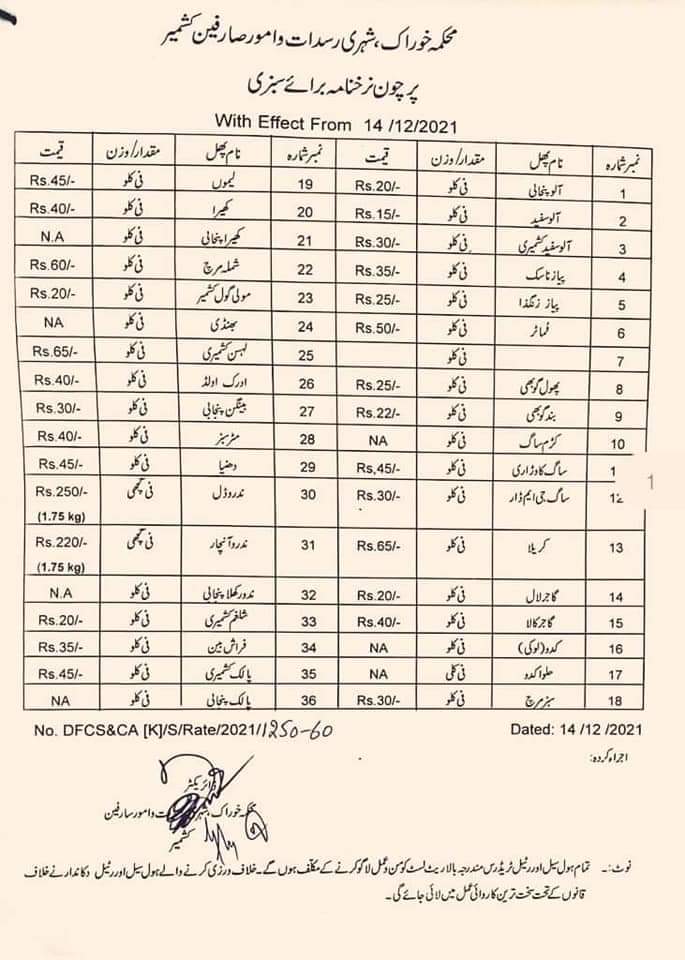 محکمہ خوراک، شہری رسدات و امور صارفین کشمیر
پرچون نرخنامہ برائے سبزی
With Effect From 14 /12/2021
نمبر شمارہ نام پھل مقدار/وزن قیمت نمبر شمارہ نام پھل مقدار/وزن قیمت
1 آلو پنجابی فی کلو Rs.20/- 19 لیموں فی کلو Rs.45/-
2 آلو سفید فی کلو Rs.15/- 20 کھیرا فی کلو Rs.40/-
3 آلو سفید کشمیری فی کلو Rs.30/- 21 کھیرا پنجابی فی کلو N.A
4 پیاز ناسک فی کلو Rs.35/- 22 شملہ مرچ فی کلو Rs.60/-
5 پیاز فی کلو Rs.25/- 23 مولی گول کشمیر فی کلو Rs.20/-
6 ٹماٹر فی کلو Rs.50/- 24 بھنڈی فی کلو NA
7 فی کلو 25 لہسن کشمیری فی کلو Rs.65/-
8 پھول گوبھی فی کلو Rs.25/- 26 ادرک اولڈ فی کلو Rs.40/-
9 بند گوبھی فی کلو Rs.22/- 27 بینگن پنجابی فی کلو Rs.30/-
10 کڑم ساگ فی کلو NA 28 مٹر سبز فی کلو Rs.40/-
1 1 ساگ کاوڈاری فی کلو Rs,45/- 29 دھنیا فی کلو Rs.45/-
12 ساگ جی ایم ڈار فی کلو Rs.30/- 30 ندرو ڈل فی گچھی Rs.250/-
(1.75 kg)
13 کریلا فی کلو Rs.65/- 31 ندرو آنچار فی گچھی Rs.220/-
(1.75 kg)
14 گاجر لال فی کلو Rs.20/- 32 ندور کھلا پنجابی فی کلو N.A
15 گاجر کالا فی کلو Rs.40/- 33 شلغم کشمیری فی کلو Rs.20/-
16 کدو (لوکی) فی کلو NA 34 فراش بین فی کلو Rs.35/-
17 حلوا کدو فی کلی NA 35 پالک کشمیری فی کلو Rs.45/-
18 سبز مرچ فی کلو Rs.30/- 36 پالک پنجابی فی کلو NA
No. DFCS&CA [K]/S/Rate/2021/1250-60 Dated: 14 /12 /2021
اجراء کردہ:
ڈائریکٹر
محکمہ خوراک، شہری رسدات و امور صارفین
کشمیر
نوٹ:۔ تمام ہول سیل اور رٹیل ٹریڈرس مندرجہ بالا ریٹ لسٹ کو من و عمل لاگو کرنے کے مکلف ہوں گے۔ خلاف ورزی کرنے والے ہول سیل اور رٹیل دکاندار نے خلاف
قانون کے تحت سخت ترین کاروائی عمل میں لائی جائے گی۔